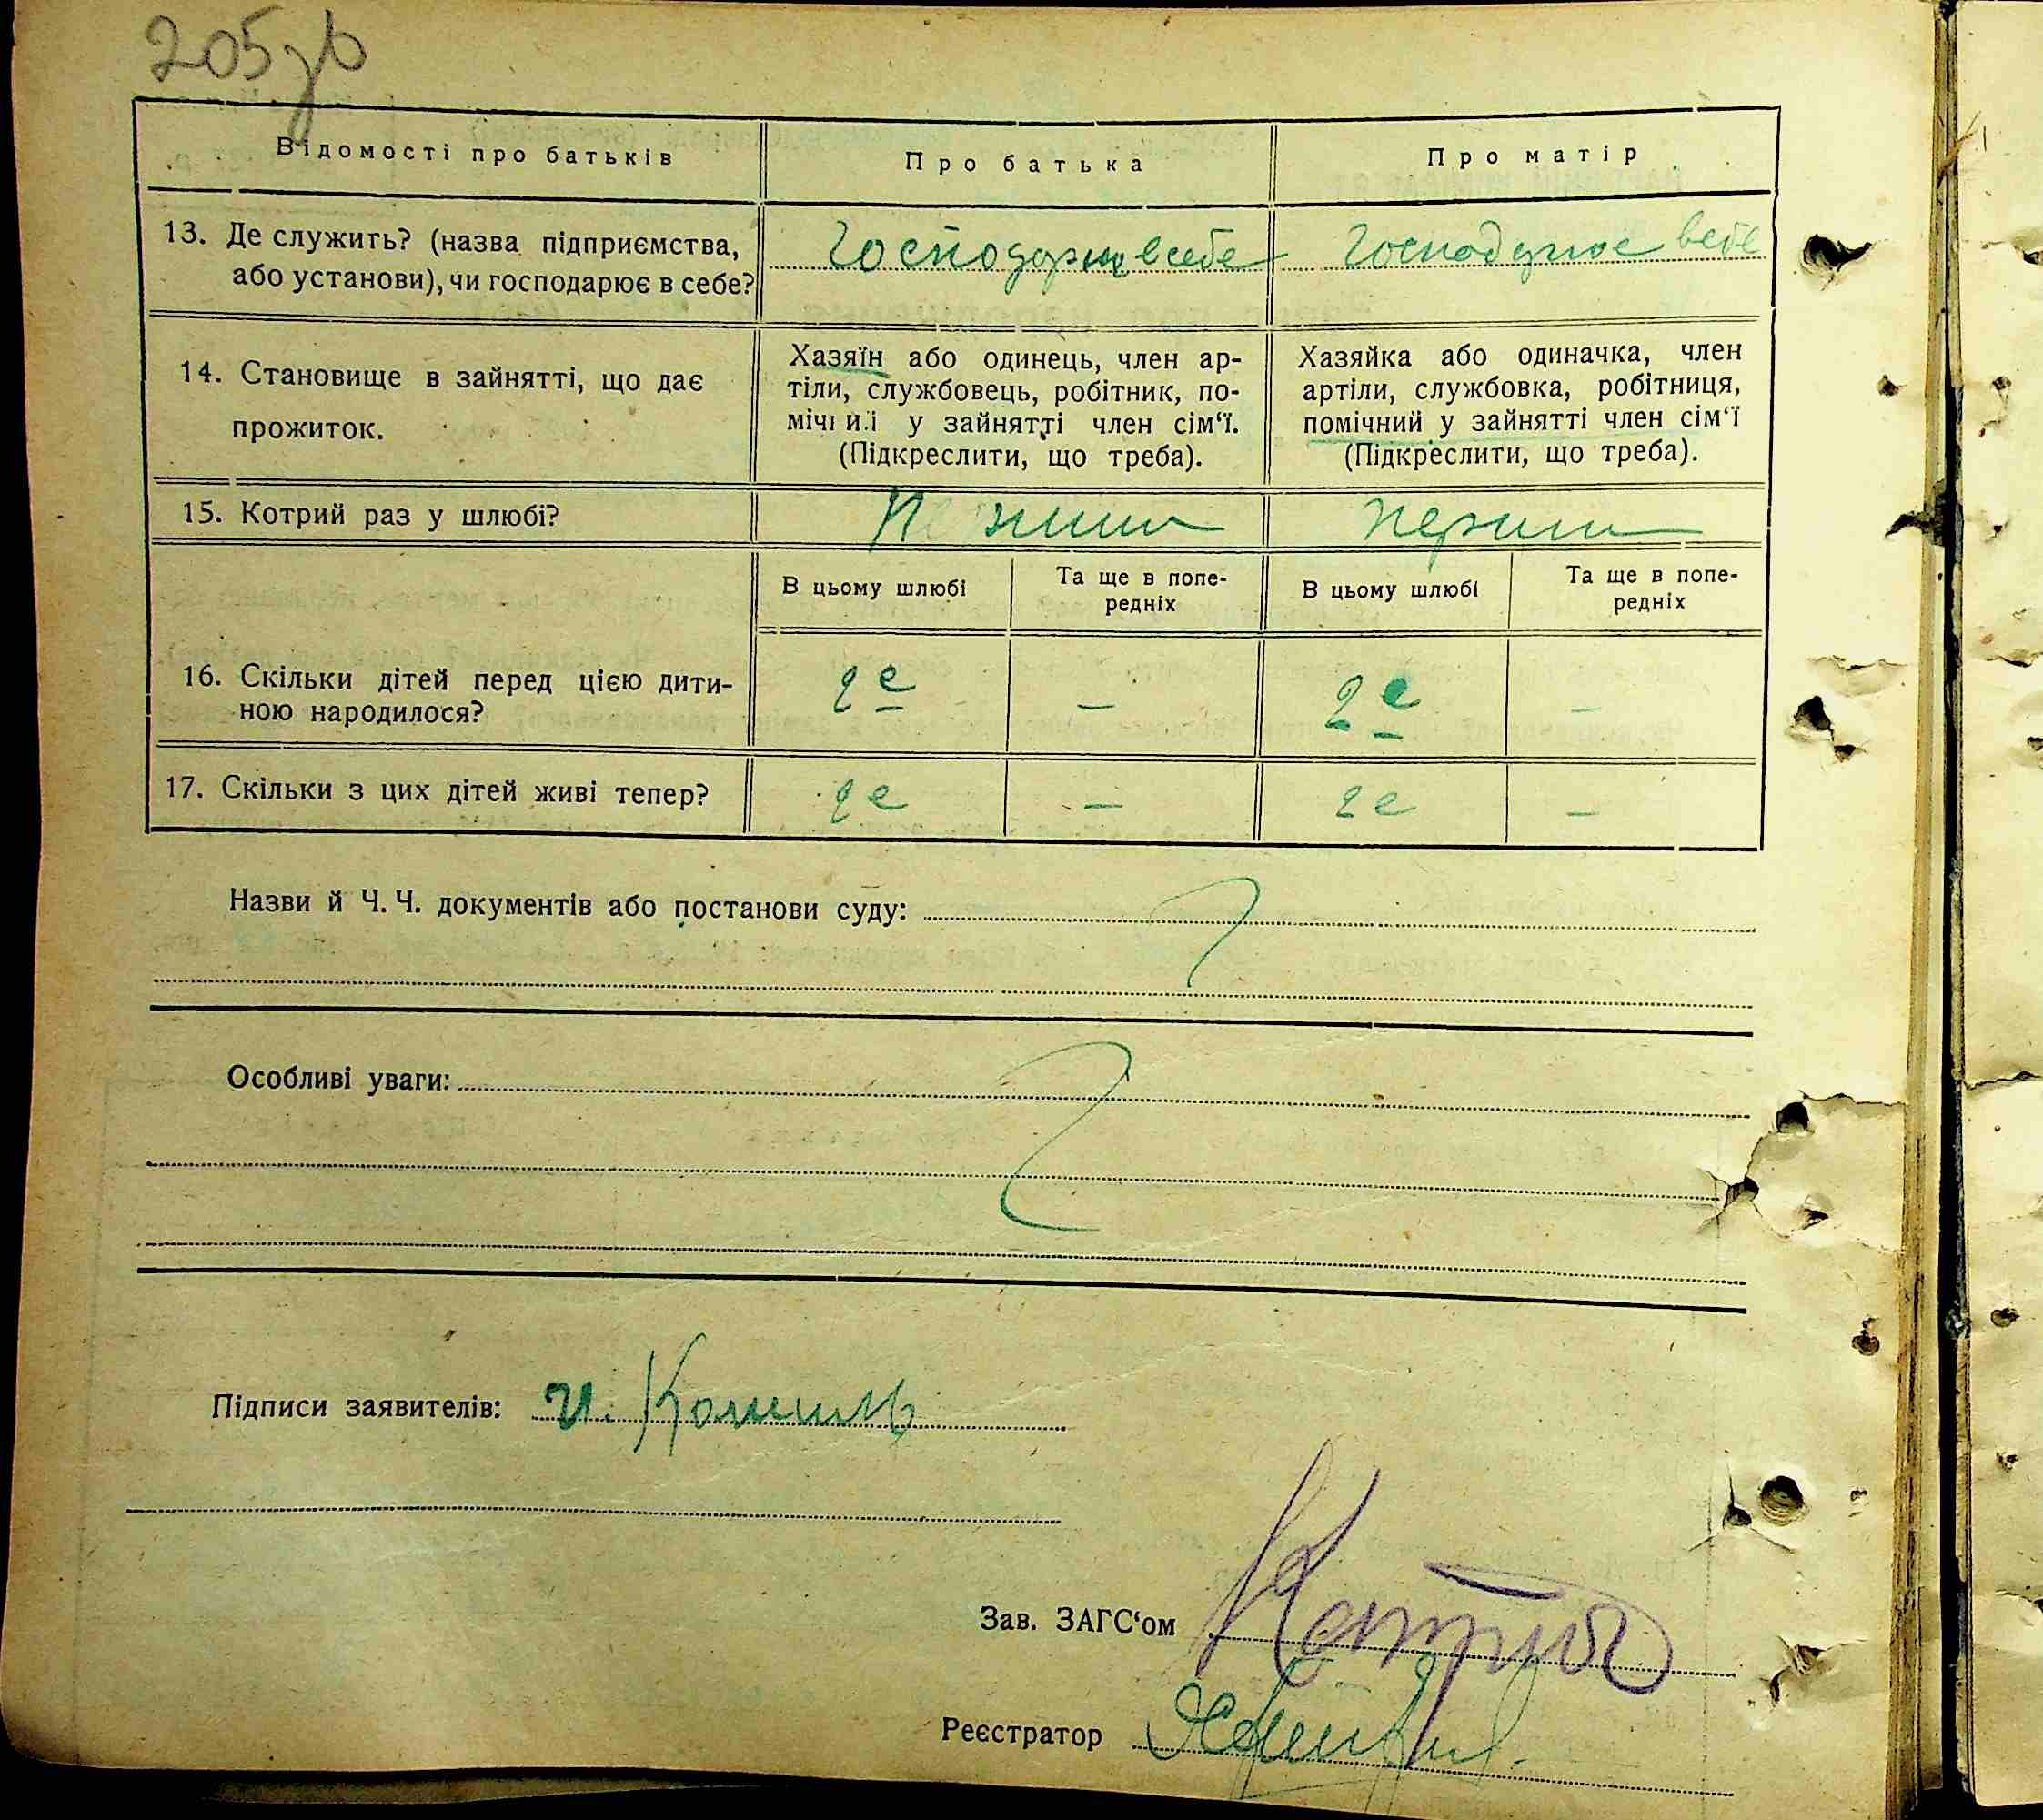 205зв
Відомості про батьків
Про батька
Про матір
13. Де служить? (назва підприємства,
або установи), чи господарює в себе?
Господарює в себе
Господарює в себе
14. Становище в зайнятті, що дає
прожиток.
Хазяїн або одинець, член ар-
тіли, службовець, робітник, по-
мічний у зайнятті член сім‘ї.
(Підкреслити, що треба).
Хазяйка або одиначка, член
артіли, службовка, робітниця,
помічний у зайнятті член сім‘ї
(Підкреслити, що треба).
15. Котрий раз у шлюбі?
перший
В цьому шлюбі
Та ще в попе-
редніх
В цьому шлюбі
Та ще в попе-
редніх
16. Скільки дітей перед цією дити-
ною народилося?
2е
–
2е
–
17. Скільки з цих дітей живі тепер?
2е
–
2е
–
Назви й Ч. Ч. документів або постанови суду:
Особливі уваги:
Підписи заявителів:
Зав. ЗАГС‘ом
Реєстратор